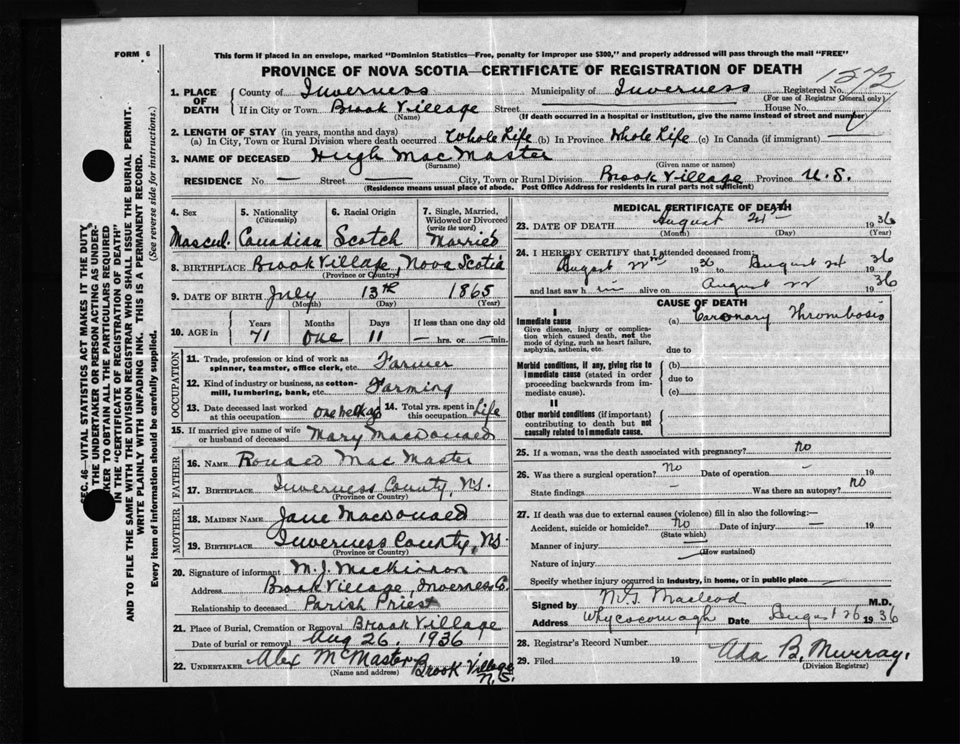 FORM 6
This form if placed in an envelope, marked "Dominion Statistics—Free, penalty for improper use $300," and properly addressed will pass through the mail "FREE"
PROVINCE OF NOVA SCOTIA—CERTIFICATE OF REGISTRATION OF DEATH
1. PLACE OF DEATH
County of Inverness Municipality of Inverness Registered No.
(For use of Registrar General only)
If in City or Town Brook Village Street House No.
(Name) (If death occurred in a hospital or institution, give the name instead of street and number)
2. LENGTH OF STAY (in years, months and days)
(a) In City, Town or Rural Division where death occurred Whole Life (b) In Province Whole Life (c) In Canada (if immigrant) —
3. NAME OF DECEASED Hugh MacMaster
(Surname) (Given name or names)
RESIDENCE No — Street — City, Town or Rural Division Brook Village Province N.S.
(Residence means usual place of abode. Post Office Address for residents in rural parts not sufficient)
4. Sex Mascul.
5. Nationality (Citizenship) Canadian
6. Racial Origin Scotch
7. Single, Married, Widowed or Divorced (write the word) Married
8. BIRTHPLACE Brook Village, Nova Scotia
(Province or Country)
9. DATE OF BIRTH July 13th 1865
(Month) (Day) (Year)
10. AGE in Years Months Days If less than one day old
71 one 11 — hrs. or — min.
OCCUPATION
11. Trade, profession or kind of work as spinner, teamster, office clerk, etc. Farmer
12. Kind of industry or business, as cotton-mill, lumbering, bank, etc. Farming
13. Date deceased last worked at this occupation one week ago 14. Total yrs. spent in this occupation Life
15. If married give name of wife or husband of deceased Mary MacDonald
FATHER
16. NAME Ronald MacMaster
17. BIRTHPLACE Inverness County, N.S.
(Province or Country)
MOTHER
18. MAIDEN NAME Jane MacDonald
19. BIRTHPLACE Inverness County, N.S.
(Province or Country)
20. Signature of informant M. J. MacKinnon
Address Brook Village, Inverness Co.
Relationship to deceased Parish Priest
21. Place of Burial, Cremation or Removal Brook Village
Date of burial or removal Aug 26. 1936
22. UNDERTAKER Alex McMaster Brook Village N.S.
(Name and address)
MEDICAL CERTIFICATE OF DEATH
23. DATE OF DEATH August 24 1936
(Month) (Day) (Year)
24. I HEREBY CERTIFY that I attended deceased from:
August 22nd 1936 to August 24 1936
and last saw h im alive on August 22 1936
CAUSE OF DEATH
I
Immediate cause (a) Coronary Thrombosis
Give disease, injury or complication which caused death, not the mode of dying, such as heart failure, asphyxia, asthenia, etc.
due to
Morbid conditions, if any, giving rise to immediate cause (stated in order proceeding backwards from immediate cause).
(b)
due to
(c)
II
Other morbid conditions (if important) contributing to death but not causally related to immediate cause.
25. If a woman, was the death associated with pregnancy? no
26. Was there a surgical operation? no Date of operation — 19
State findings — Was there an autopsy? no
27. If death was due to external causes (violence) fill in also the following:—
Accident, suicide or homicide? no Date of injury — 19
(State which)
Manner of injury
(How sustained)
Nature of injury
Specify whether injury occurred in industry, in home, or in public place —
Signed by Macleod M.D.
Address Whycocomagh Date August 26 1936
28. Registrar's Record Number
29. Filed 19 Ada B. Murray.
(Division Registrar)
SEC. 46—VITAL STATISTICS ACT MAKES IT THE DUTY
THE UNDERTAKER OR PERSON ACTING AS UNDER-
KER TO OBTAIN ALL THE PARTICULARS REQUIRED
IN THE "CERTIFICATE OF REGISTRATION OF DEATH"
AND TO FILE THE SAME WITH THE DIVISION REGISTRAR WHO SHALL ISSUE THE BURIAL PERMIT.
WRITE PLAINLY WITH UNFADING INK. THIS IS A PERMANENT RECORD.
Every item of information should be carefully supplied. (See reverse side for instructions.)